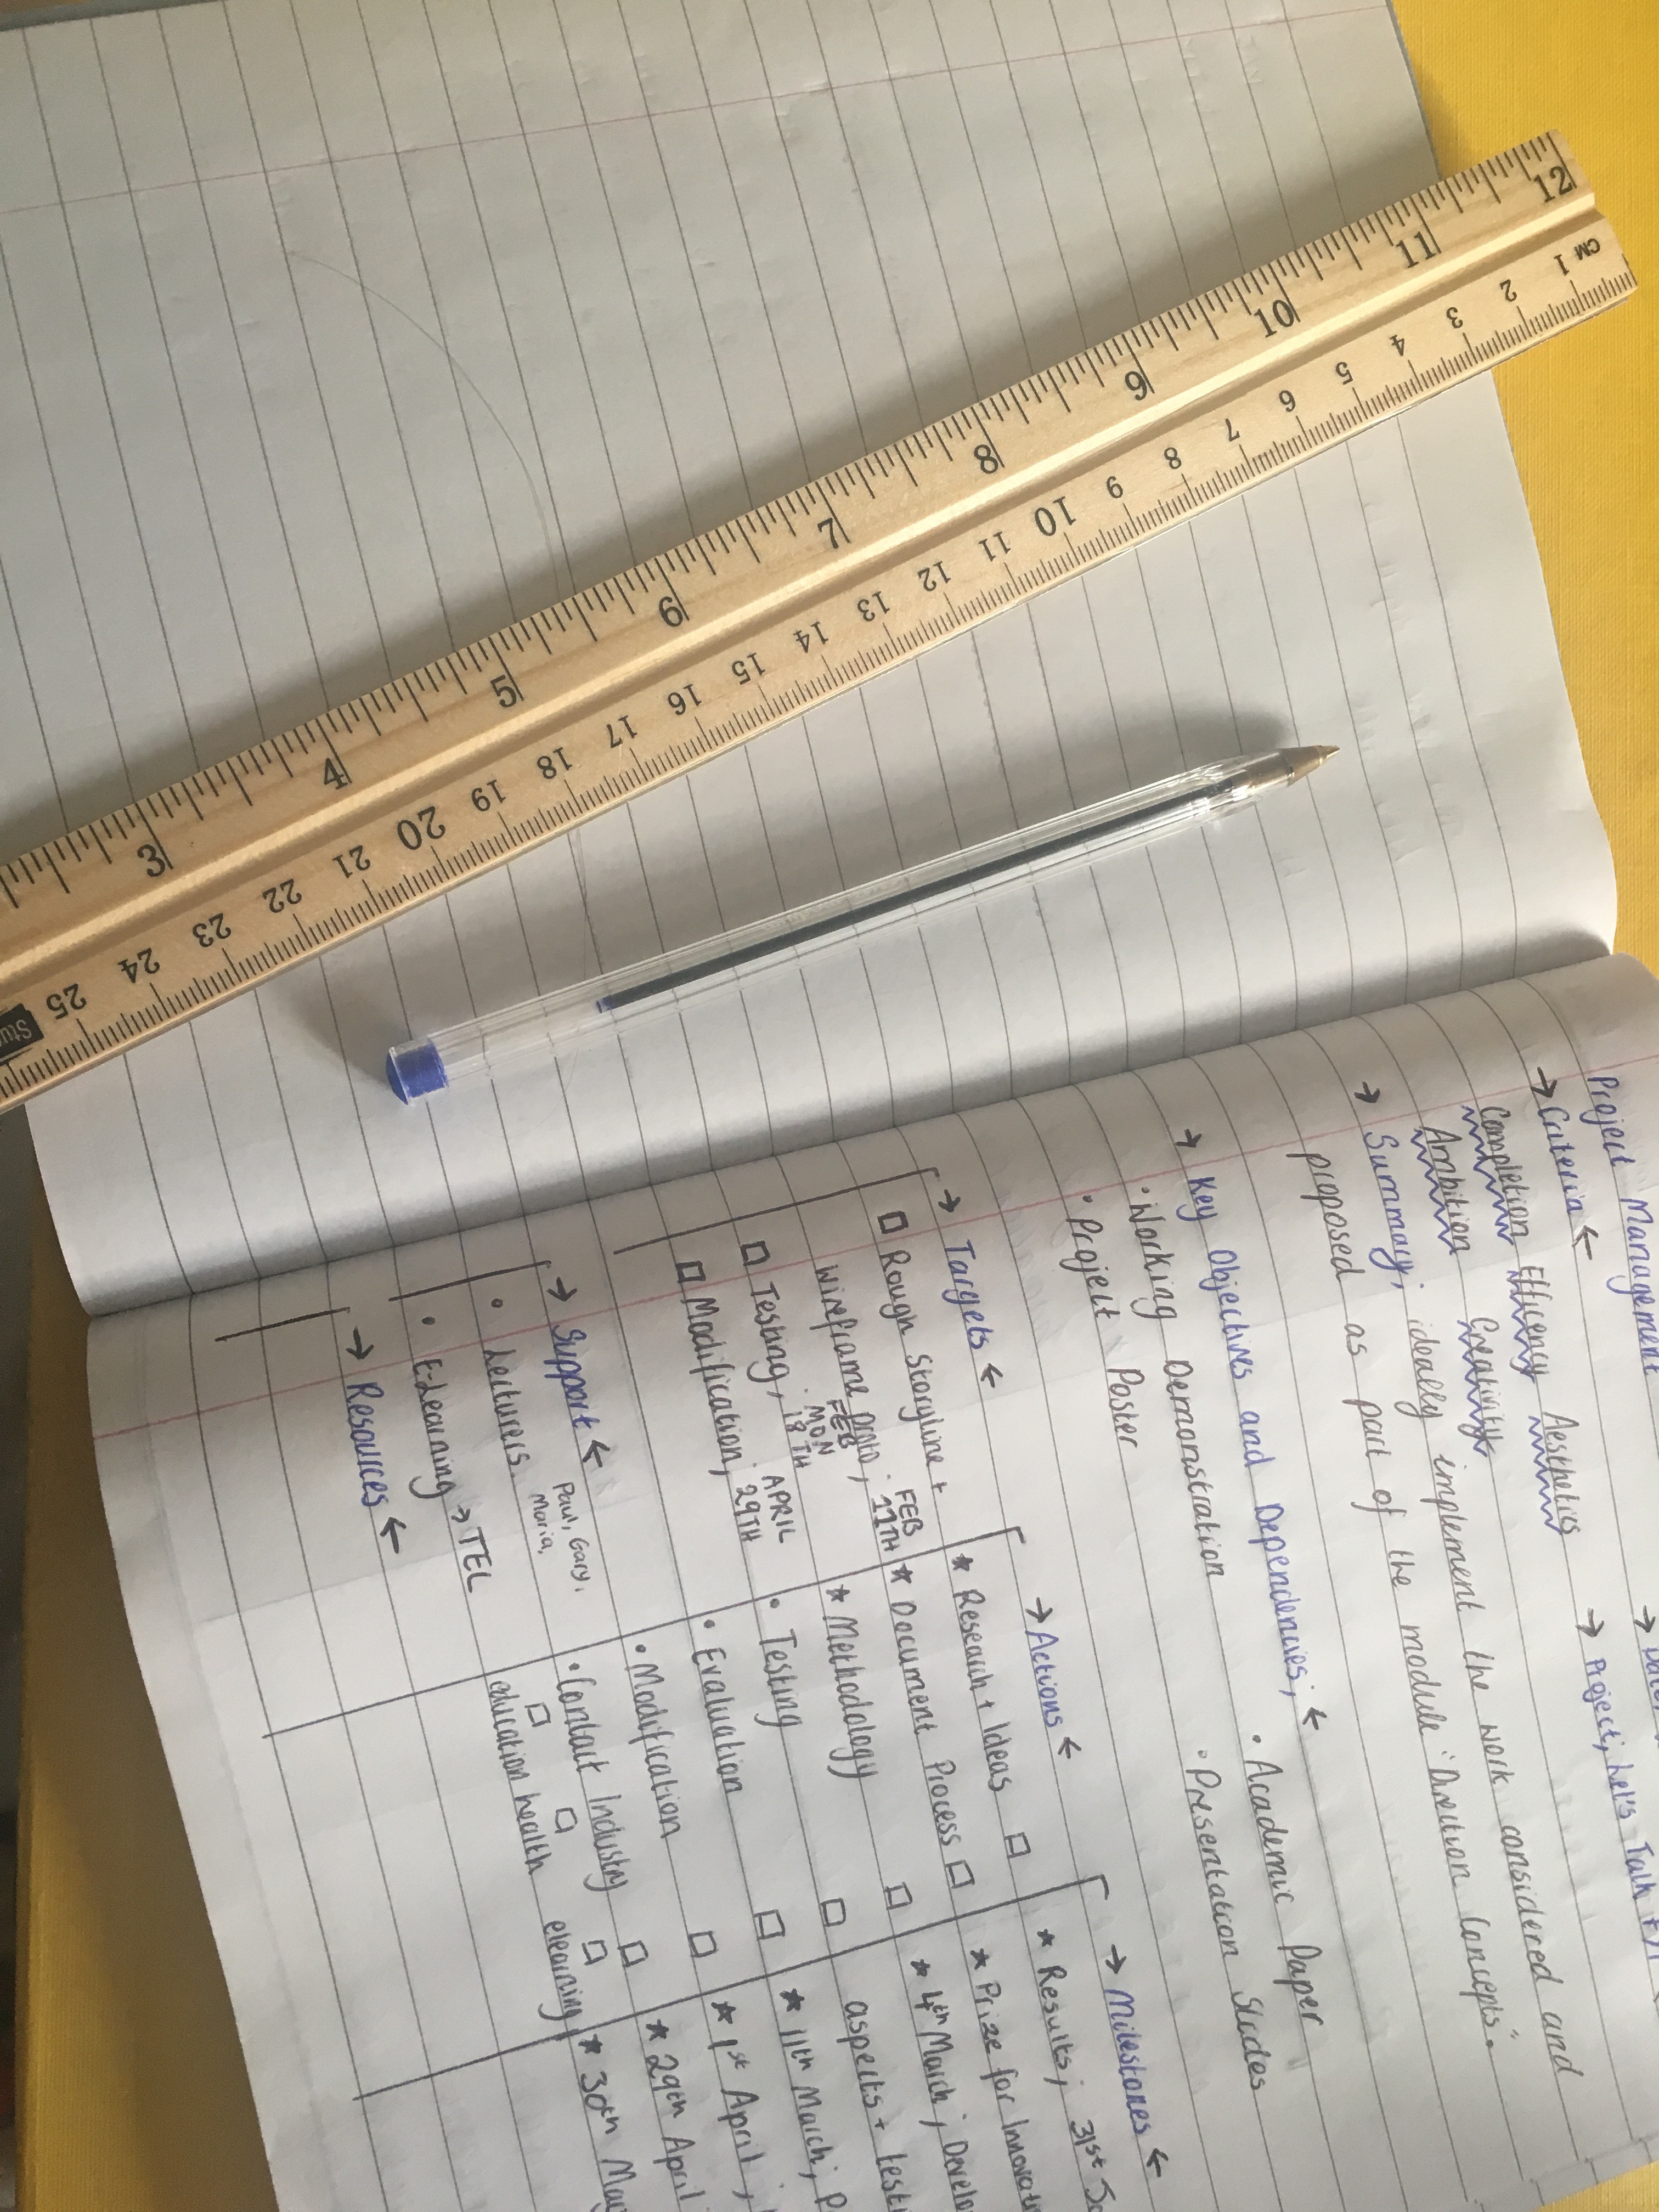 Project Management
→ Project; Let's Talk
→ Criteria ←
Completion Efficiency Aesthetics
Ambition Creativity
→ Summary; ideally implement the work considered and
proposed as part of the module "Direction Concepts".
→ Key Objectives and Dependencies; ←
• Working Demonstration
• Project Poster
• Academic Paper
• Presentation Slides
→ Targets ←
Rough Storyline +
wireframe proto, FEB 11TH
Testing, FEB MON 18TH
Modification, APRIL 29TH
→ Actions ←
★ Research + Ideas
★ Document Process
★ Methodology
• Testing
• Evaluation
• Modification
• Contact Industry
education health elearning
→ Milestones ←
★ Results; 31st
★ Prize for
★ 4th March;
aspects +
★ 11th March;
★ 1st April;
★ 29th April
★ 30th
→ Support ←
• Lecturers. Paul, Gary,
Maria,
• E-Learning → TEL
→ Resources ←
3 4 5 6 7 8 9 10 11 12
CM 1 2 3 4 5 6 7 8 9 10 11 12 13 14 15 16 17 18 19 20 21 22 23 24 25